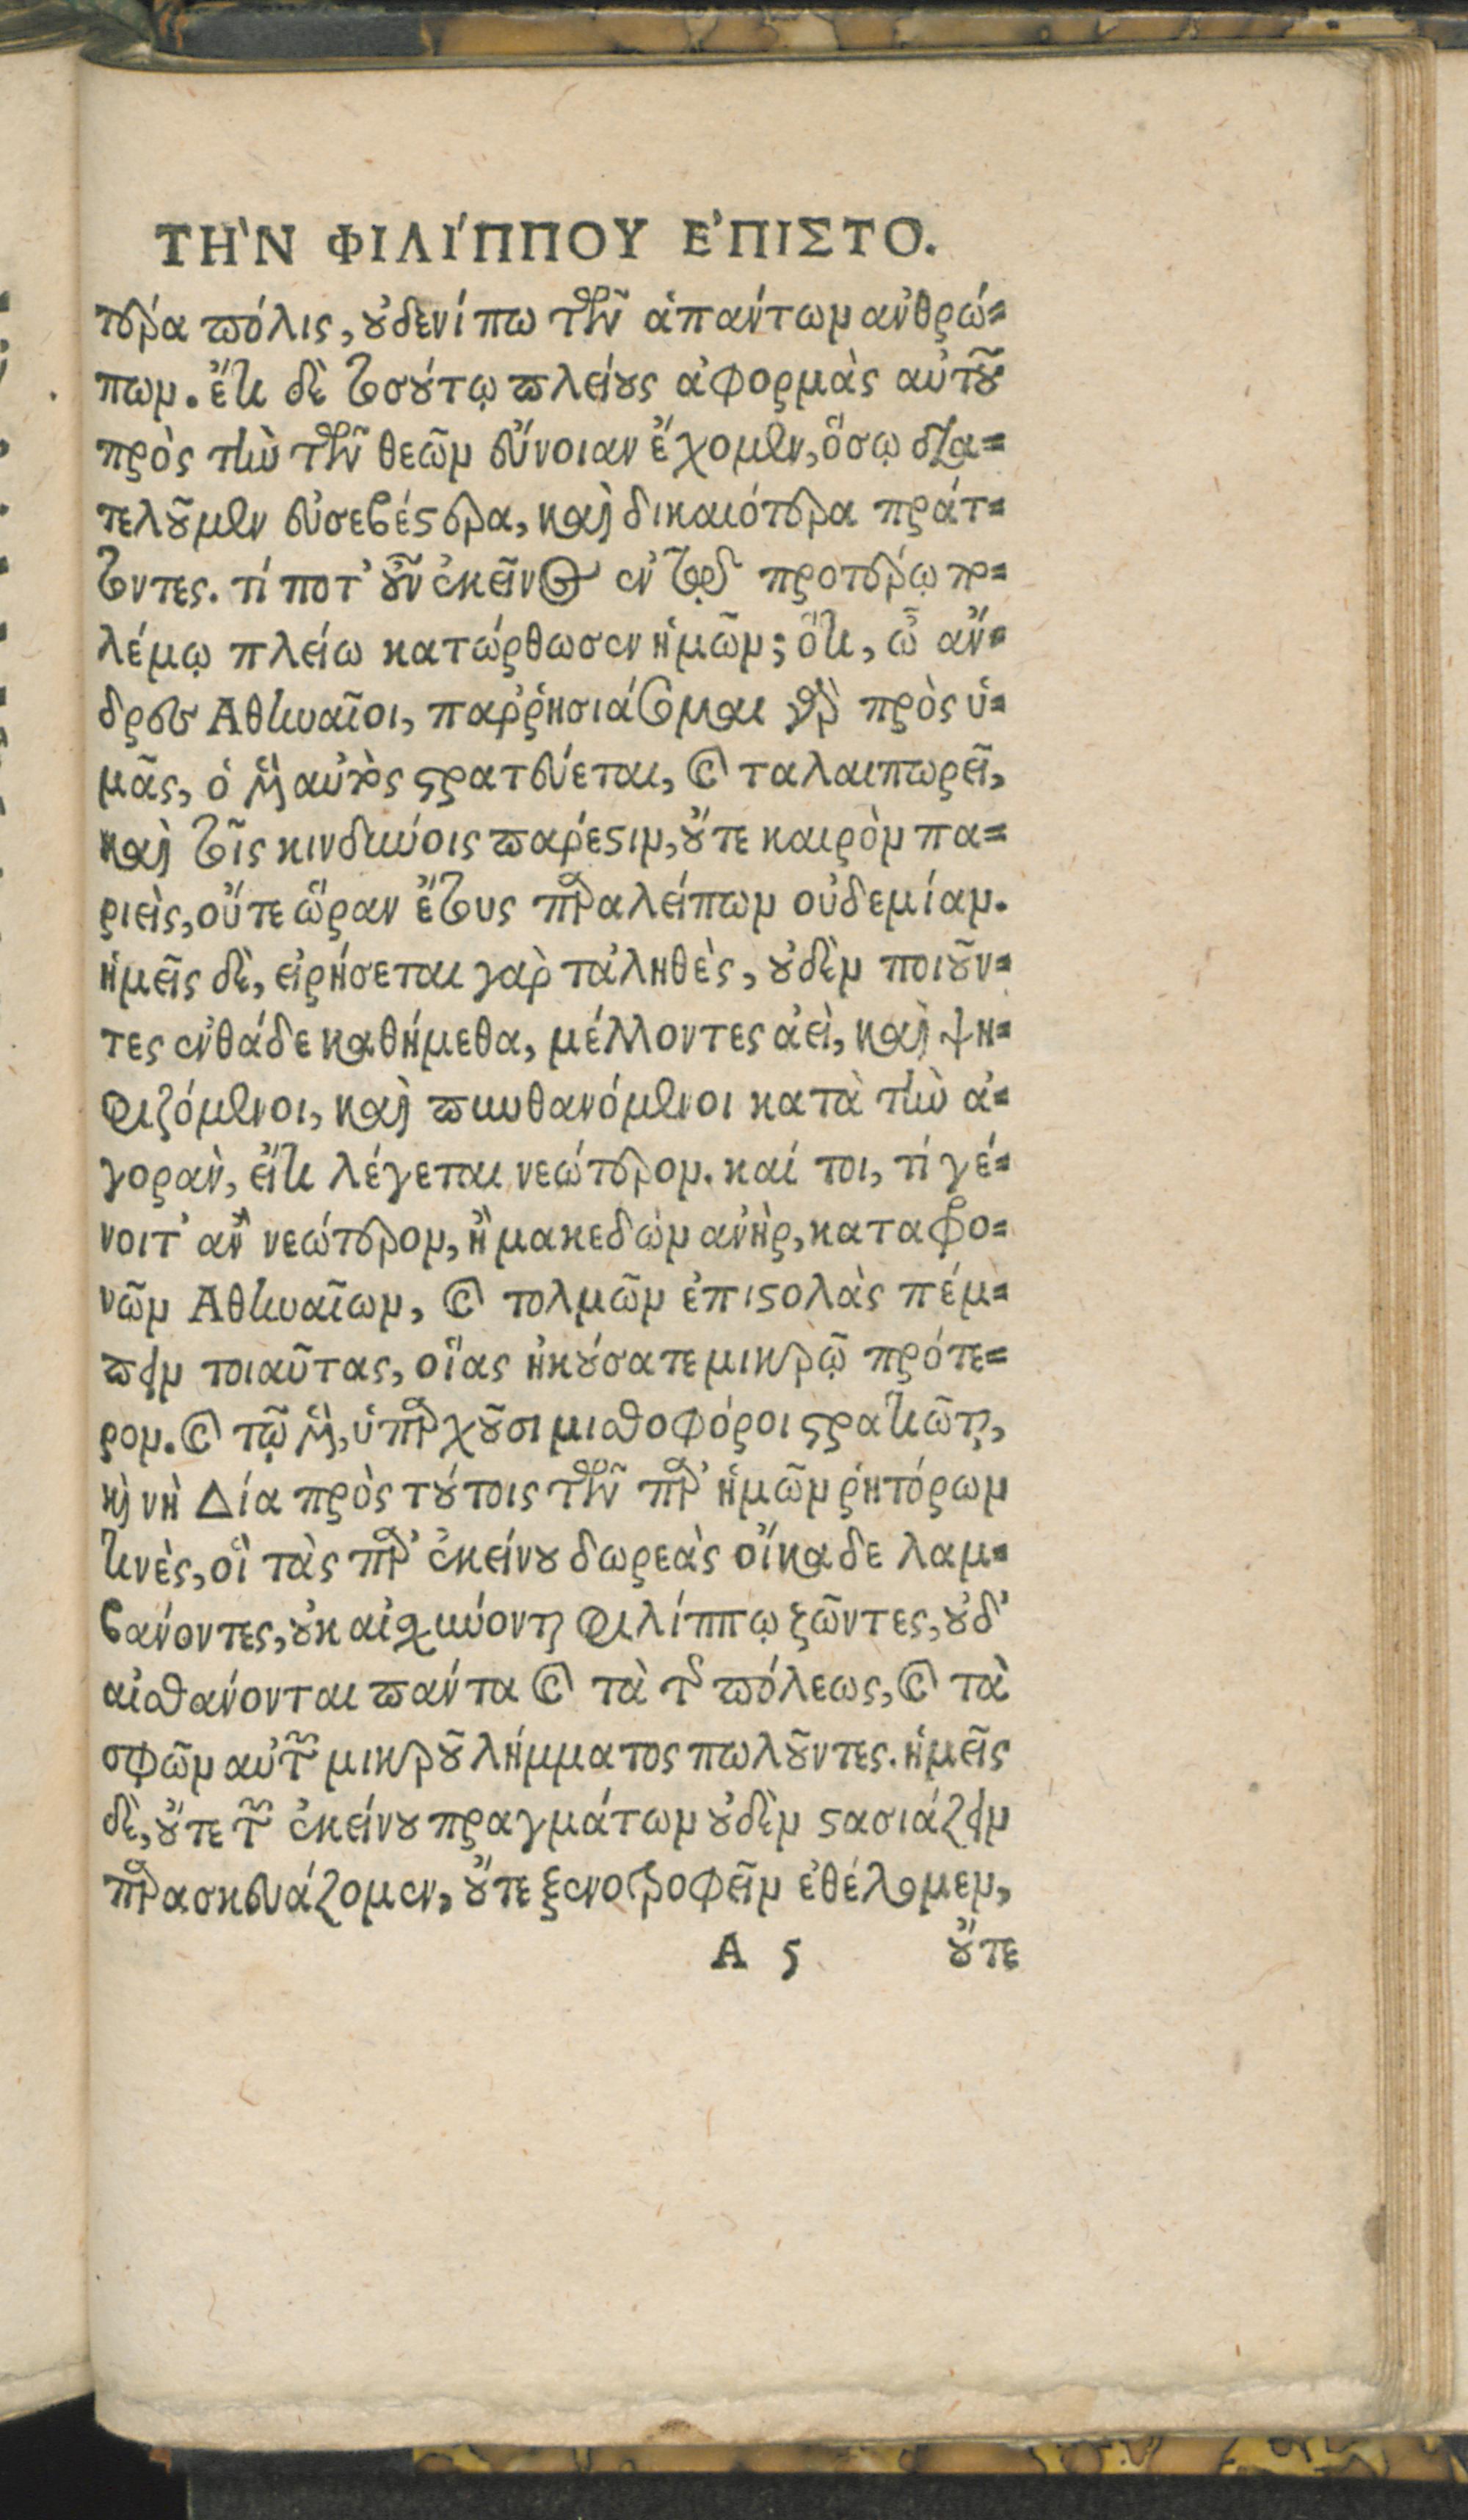 ΤῊΝ ΦΙΛΊΠΠΟΥ ἘΠΙΣΤΟ.
τέρα πόλις, οὐδενί πω τῶν ἁπάντων ἀνθρώ-
πων. ἔτι δὲ τοσούτῳ πλείους ἀφορμὰς αὐτοῦ
πρὸς τὴν τῶν θεῶν εὔνοιαν ἔχομεν, ὅσῳ δια-
τελοῦμεν εὐσεβέστερα, καὶ δικαιότερα πράτ-
τοντες. τί ποτ' οὖν ἐκεῖνος ἐν τῷ προτέρῳ πο-
λέμῳ πλείω κατώρθωσεν ἡμῶν; ὅτι, ὦ ἄν-
δρες Ἀθηναῖοι, παῤῥησιάσομαι γὰρ πρὸς ὑ-
μᾶς, ὁ μὲν αὐτὸς στρατεύεται, καὶ ταλαιπωρεῖ,
καὶ τοῖς κινδύνοις πάρεστιν, οὔτε καιρὸν πα-
ριεὶς, οὔτε ὥραν ἔτους παραλείπων οὐδεμίαν.
ἡμεῖς δὲ, εἰρήσεται γὰρ τἀληθὲς, οὐδὲν ποιοῦν-
τες ἐνθάδε καθήμεθα, μέλλοντες ἀεὶ, καὶ ψη-
φιζόμενοι, καὶ πυνθανόμενοι κατὰ τὴν ἀ-
γορὰν, εἴτι λέγεται νεώτερον. καί τοι, τί γέ-
νοιτ' ἂν νεώτερον, ἢ μακεδὼν ἀνὴρ, καταφρο-
νῶν Ἀθηναίων, καὶ τολμῶν ἐπιστολὰς πέμ-
πειν τοιαῦτας, οἵας ἠκούσατε μικρῷ πρότε-
ρον. καὶ τῷ μὲν, ὑπάρχουσι μισθοφόροι στρατιῶται,
καὶ νὴ Δία πρὸς τούτοις τῶν παρ' ἡμῶν ῥητόρων
τινὲς, οἳ τὰς παρ' ἐκείνου δωρεὰς οἴκαδε λαμ-
βάνοντες, οὐκ αἰσχύνονται φιλίππῳ ζῶντες, οὐδ'
αἰσθάνονται πάντα καὶ τὰ τῆς πόλεως, καὶ τὰ
σφῶν αὐτῶν μικροῦ λήμματος πωλοῦντες. ἡμεῖς
δὲ, οὔτε τῶν ἐκείνου πραγμάτων οὐδὲν στασιάζειν
παρασκευάζομεν, οὔτε ξενοτροφεῖν ἐθέλομεν,
A 5 οὔτε